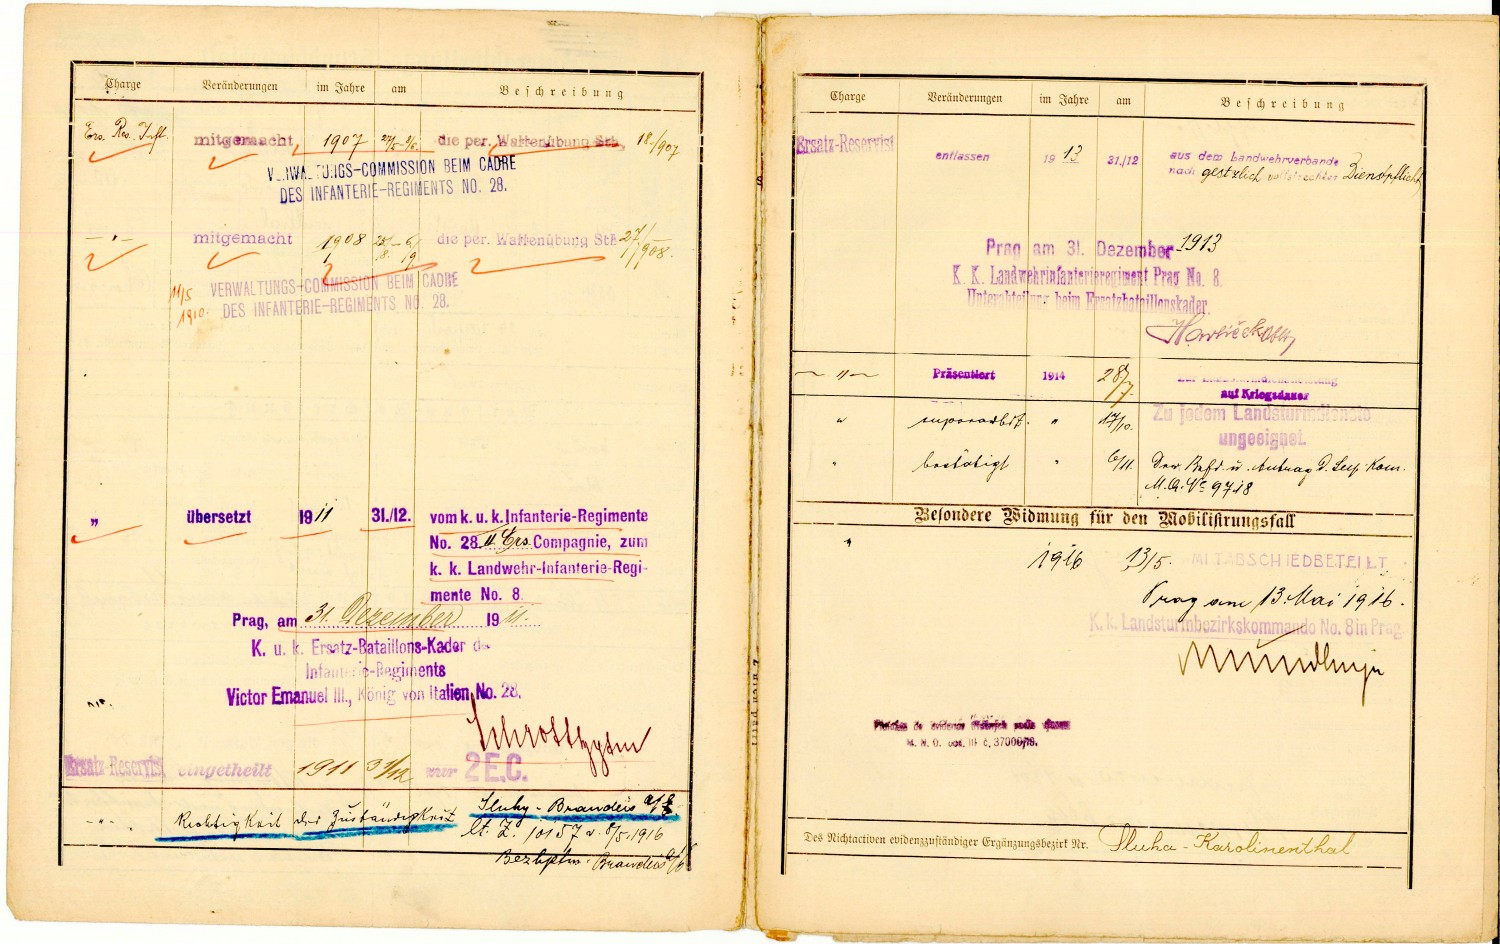 Charge Veränderungen im Jahre am Beschreibung
Ers. Res. Inft. mitgemacht 1907 die per. Waffenübung Stb, 18./907
VERWALTUNGS-COMMISSION BEIM CADRE
DES INFANTERIE-REGIMENTS NO. 28.
—"— mitgemacht 1908 die per. Waffenübung Stb 27/
1/908.
11/5 VERWALTUNGS-COMMISSION BEIM CADRE
1910. DES INFANTERIE-REGIMENTS NO. 28.
" übersetzt 1911 31./12. vom k. u. k. Infanterie-Regimente
No. 28 11 Ers. Compagnie, zum
k. k. Landwehr-Infanterie-Regi-
mente No. 8.
Prag, am 31. Dezember 1911.
K. u. k. Ersatz-Bataillons-Kader des
Infanterie-Regiments
Victor Emanuel III., König von Italien No. 28.
Ersatz-Reservist eingetheilt 1911 31/12 zur 2 E.C.
—"— Richtigkeit der Zuständigkeit Sluhy - Brandeis a/E
lt. Z. 10157 v. 8/5.1916
Brandeis a/E
Charge Veränderungen im Jahre am Beschreibung
Ersatz-Reservist entlassen 1913 31./12 aus dem Landwehrverbande
nach gesetzlich vollstreckter Dienstpflicht
Prag am 31. Dezember 1913
K. K. Landwehrinfanterieregiment Prag No. 8.
Unterabteilung beim Ersatzbataillonskader.
— " — Präsentiert 1914 28/7.
auf Kriegsdauer
" superarbit. " 17/10. Zu jedem Landsturmdienste
ungeeignet.
" bestätigt " 6/11. Der Befd. u. Antrag d. Sup. Kom.
M.A. No 9718
Besondere Widmung für den Mobilisirungsfall
" 1916 13/5. MIT ABSCHIED BETEILT
Prag am 13. Mai 1916.
K. k. Landsturmbezirkskommando No. 8 in Prag
M. N. O. č. 37000/19.
Des Nichtactiven evidenzzuständiger Ergänzungsbezirk Nr. Sluha - Karolinenthal